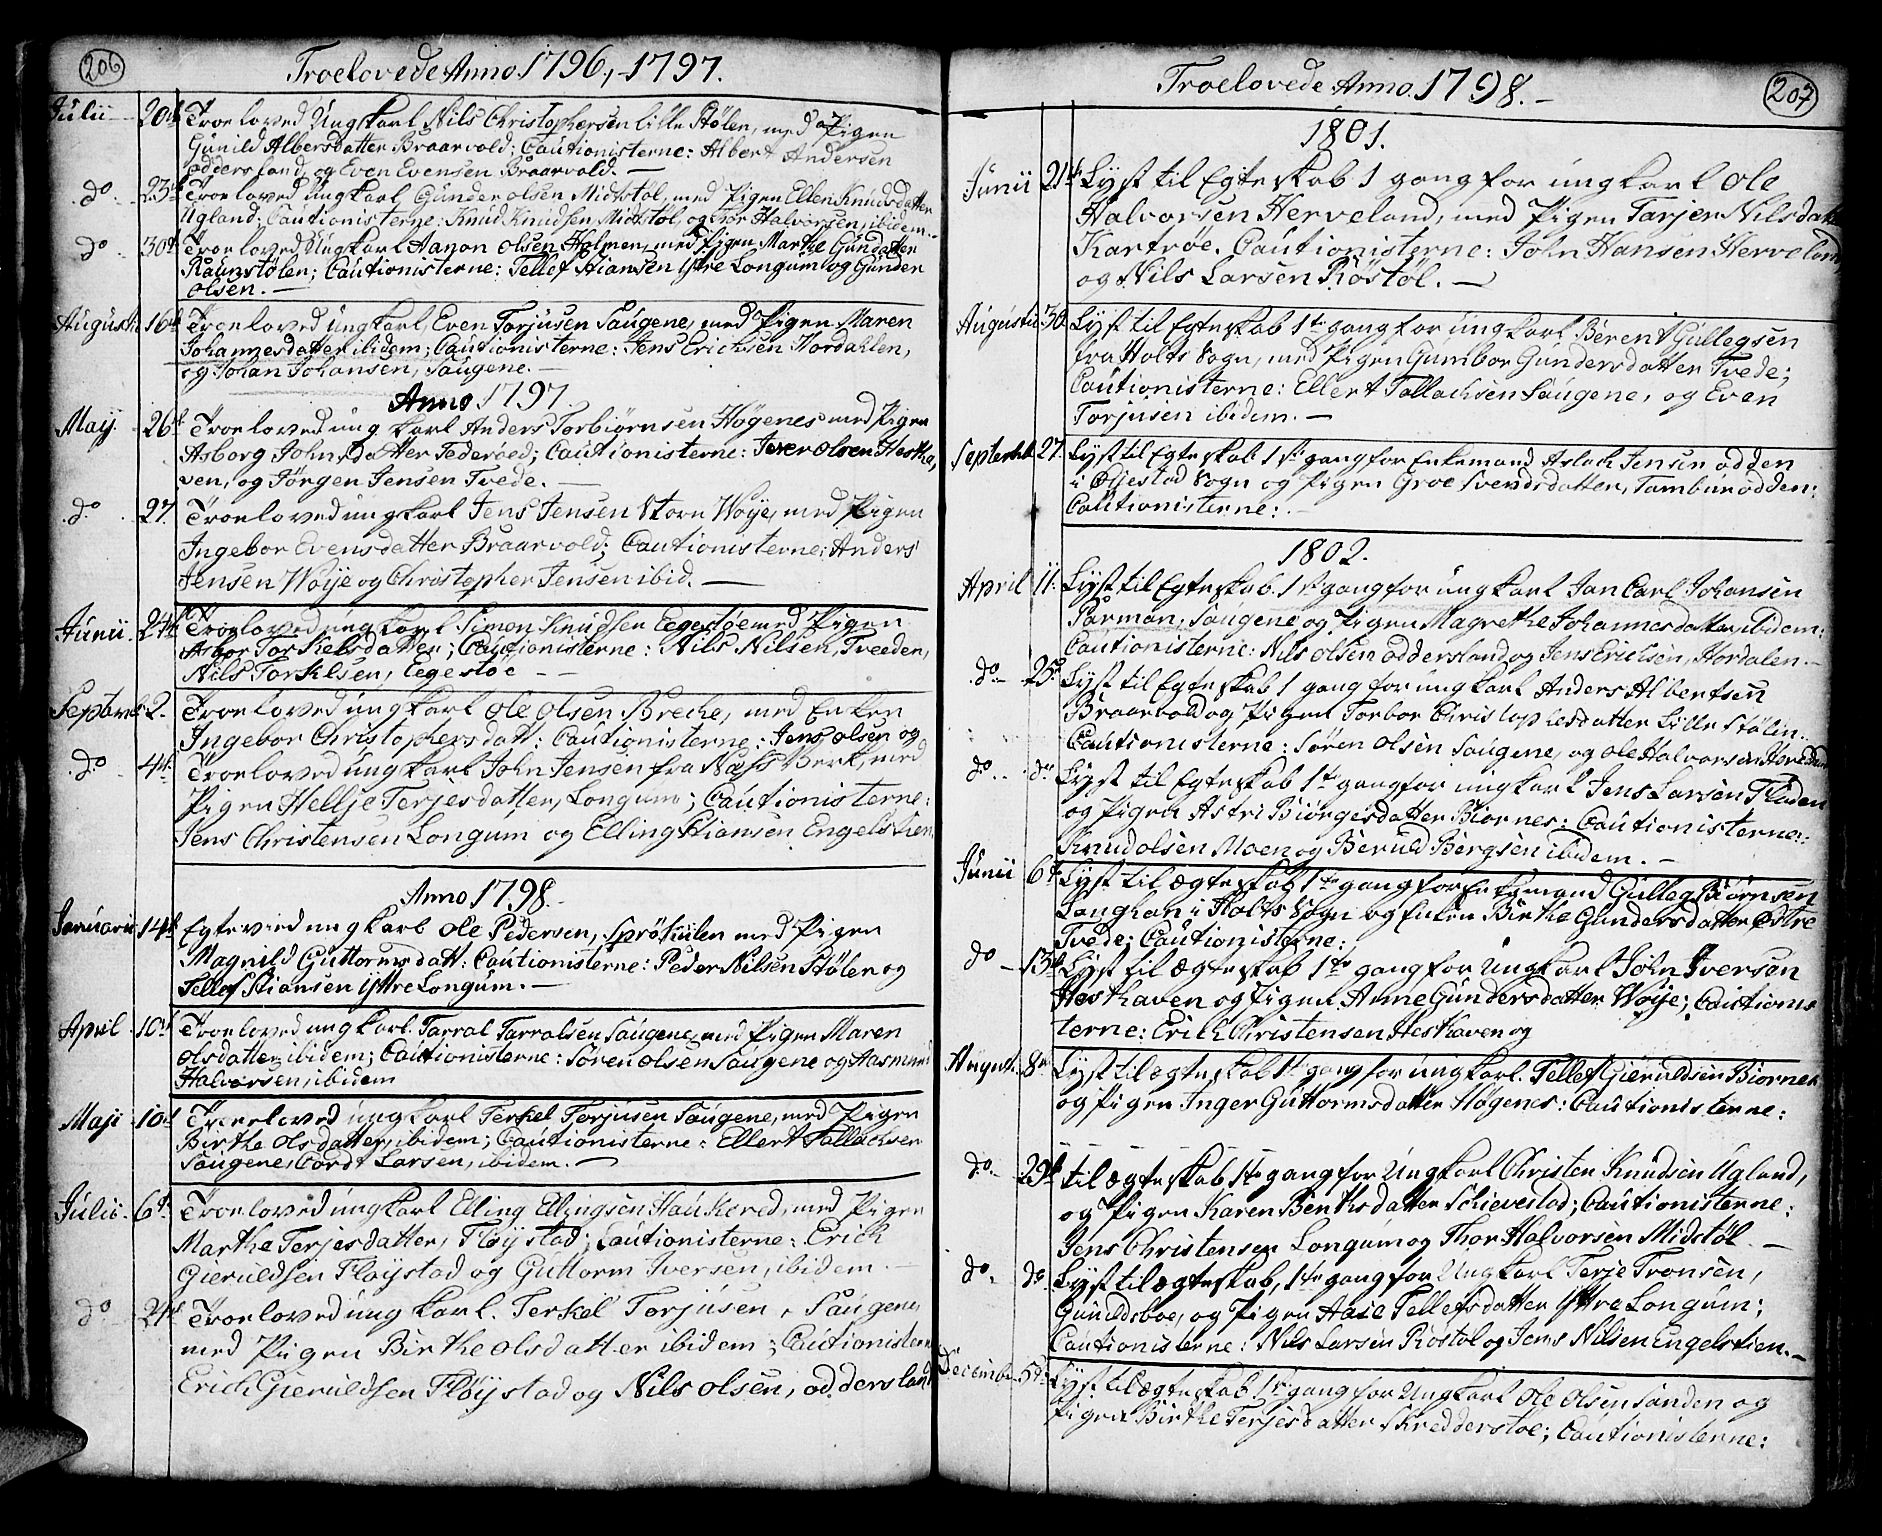 206
Troelovede Anno 1796, -1797.
Julii 20de Troeloved Ungkarl Nils Christophersen Lille Stølen, med Pigen
Gunild Albersdatter Braarvold; Cautionisterne: Albert Andersen
oddersland, og Even Evensen Braarvold. —
do 23de Troeloved Ungkarl Gunder olsen Midtstøl, med Pigen Ellen Knudsdatter
Ugland; Cautionisterne: Knud Knudsen Midtstøl og Tor Halvorsen, ibidem.
do 30te Troeloved Ungkarl Aanon Olsen Holmen, med Pigen Marthe Gunder
Raunstølen; Cautionisterne: Tellef Kiansen Yttre Longum og Gunder
olsen. —
Augusti 16de Troeloved ungkarl, Even Torjusen Saugene, med Pigen Maren
Johannesdatter ibidem; Cautionisterne: Jens Ericksen Hordahlen,
og Johan Johansen, Saugene. —
Anno 1797.
Maij 26t Troeloved ung karl Anders Torbiørnsen Høgenes med Pigen
Asborg Johnsdatter Federoed; Cautionisterne: Iver Olsen Hestha,
ven, og Jörgen Jensen Tvede. —
do 27 Troeloved ungkarl Jens Jensen Store Woije, med Pigen
Ingebor Evensdatter Braarvold; Cautionisterne: Anders
Jensen Woije og Christopher Jensen ibid. —
Junii 24de Troeloved ungkarl Simon Knudsen Eegestøe med Pigen
Asbor Torkelsdatter; Cautionisterne: Nils Nilsen, Tveden,
Nils Torkelsen, Eegestøe — —
Septbr 2. Troeloved ungkarl Ole Olsen Breche, med Enken
Ingebor Christophersdatt: Cautionisterne: Jens Olsen og
do 4de Troeloved ungkarl John Jensen fra Næss Verk, med
Pigen Hellje Terjesdatter, Longum; Cautionisterne:
Jens Christensen Longum og Elling Kiansen Engelstien
Anno 1798.
Januarii 14de Egtevied ungkarl Ole Pedersen, Sprökiilen med Pigen
Magnild Guttormsdatt: Cautionisterne: Peder Nilsen Stølen og
Tellef Kiansen Yttre Longum. —
April 10de Troeloved ungkarl. Tarral Tarralsen Saugene, med Pigen Maren
Olsdatter, ibidem; Cautionisterne: Søren Olsen Saugene og Aasmund
Halvorsen, ibidem
Maji 10d Troeloved ungkarl Terkel Torjusen Saugene, med Pigen
Birthe Olsdatter, ibidem; Cautionisterne: Ellert Tallachsen
Saugene, Cordt Larsen, ibidem. —
Julii 6te Troeloved ungkarl Elling Ellingsen Haukered, med Pigen
Marthe Terjesdatter, Fløystad; Cautionisterne: Erick
Gieruldsen Fløystad og Guttorm Iversen, ibidem —
do 24de Troeloved ungkarl. Terkel Torjusen, Saugene,
med Pigen Birthe Olsdatter ibidem; Cautionistern
Erich Gieruldsen Fløystad og Nils olsen, oddersland
207
Troelovede Anno. 1798. —
1801.
Junii 21de Lyst til Egteskab 1 gang for ungkarl Ole
Halvorsen Herveland, med Pigen Tarjer Nilsdatter
Kartrøe. Cautionisterne: John Hansen Herveland
og Nils Larsen Røstøl. —
Augustii 30 Lyst til Egteskab 1ste gang for ungkarl. Berent Gullegsen
fra Holts Sogn, med Pigen Gumbor Gundersdatter Tvede;
Cautionisterne: Ellert Tallachsen Saugene, og Even
Torjusen ibidem. —
September 27. Lyst til Egteskab 1ste gang for Enkemand Aslach Jensen odden
i Øijestad Sogn og Pigen Groe Svendsdatter, Tamburodden;
Cautionisterne: —
1802.
April 11. Lyst til Egteskab. 1ste gang for ungkarl Jan Carl Johansen
Parman, Saugene og Pigen Magrethe Johannesdatter ibidem;
Cautionisterne: Nils Olsen oddersland og Jens Ericksen, Hordalen. —
do 25de Lyst til Egteskab 1 gang for ungkarl Anders Albertsen
Braarvold og Pigen Torbor Christophesdatter Lille Stølen.
Cautionisterne: Søren Olsen Saugene, og Ole Halvorsen
do do Lyst til Egteskab 1te gang for ungkarl Jens Larsen Fløden
og Pigen Astri Biörgesdatter Biornes: Cautionisterne:
Knud Olsen Moen og Beruld Bergsen ibidem. —
Junii 6te Lyst til Ægteskab 1te gang for Enkemand Gulleg Biörnsen
Langhan i Holts Sogn og Enken Birthe Gundersdatter Østre
Tvede; Cautionisterne:
do 13de Lyst til Ægteskab 1te gang for Ungkarl John Iversen
Hesthaven og Pigen Anne Gundersdatter Woije; Cautionis
terne: Erich Christensen Hesthaven og
August. 8de Lyst til ægteskab 1te gang for ungkarl. Tellef Gieruldsen Biornes
og Pigen Inger Guttormsdatter Høgenes: Cautionisterne:
do 29de til Ægteskab 1te gang for Ungkarl Christen Knudsen Ugland,
og Pigen Karen Benthsdatter Schievestad; Cautionisterne:
Jens Christensen Longum og Thor Halvorsen Midstøl —
do do Lyst til ægteskab, 1te gang for Ungkarl Terje Tronsen,
Gunuldsboe, og Pigen Aase Tellefsdatter Yttre Longum;
Cautionisterne: Nils Larsen Røstøl og Jens Nilsen Engelstien. —
Decembr 5te Lyst til ægteskab 1te gang for Ungkarl Ole Olsen Sanden og
Pigen Birthe Terjesdatter Skredderstøe; Cautionisterne: